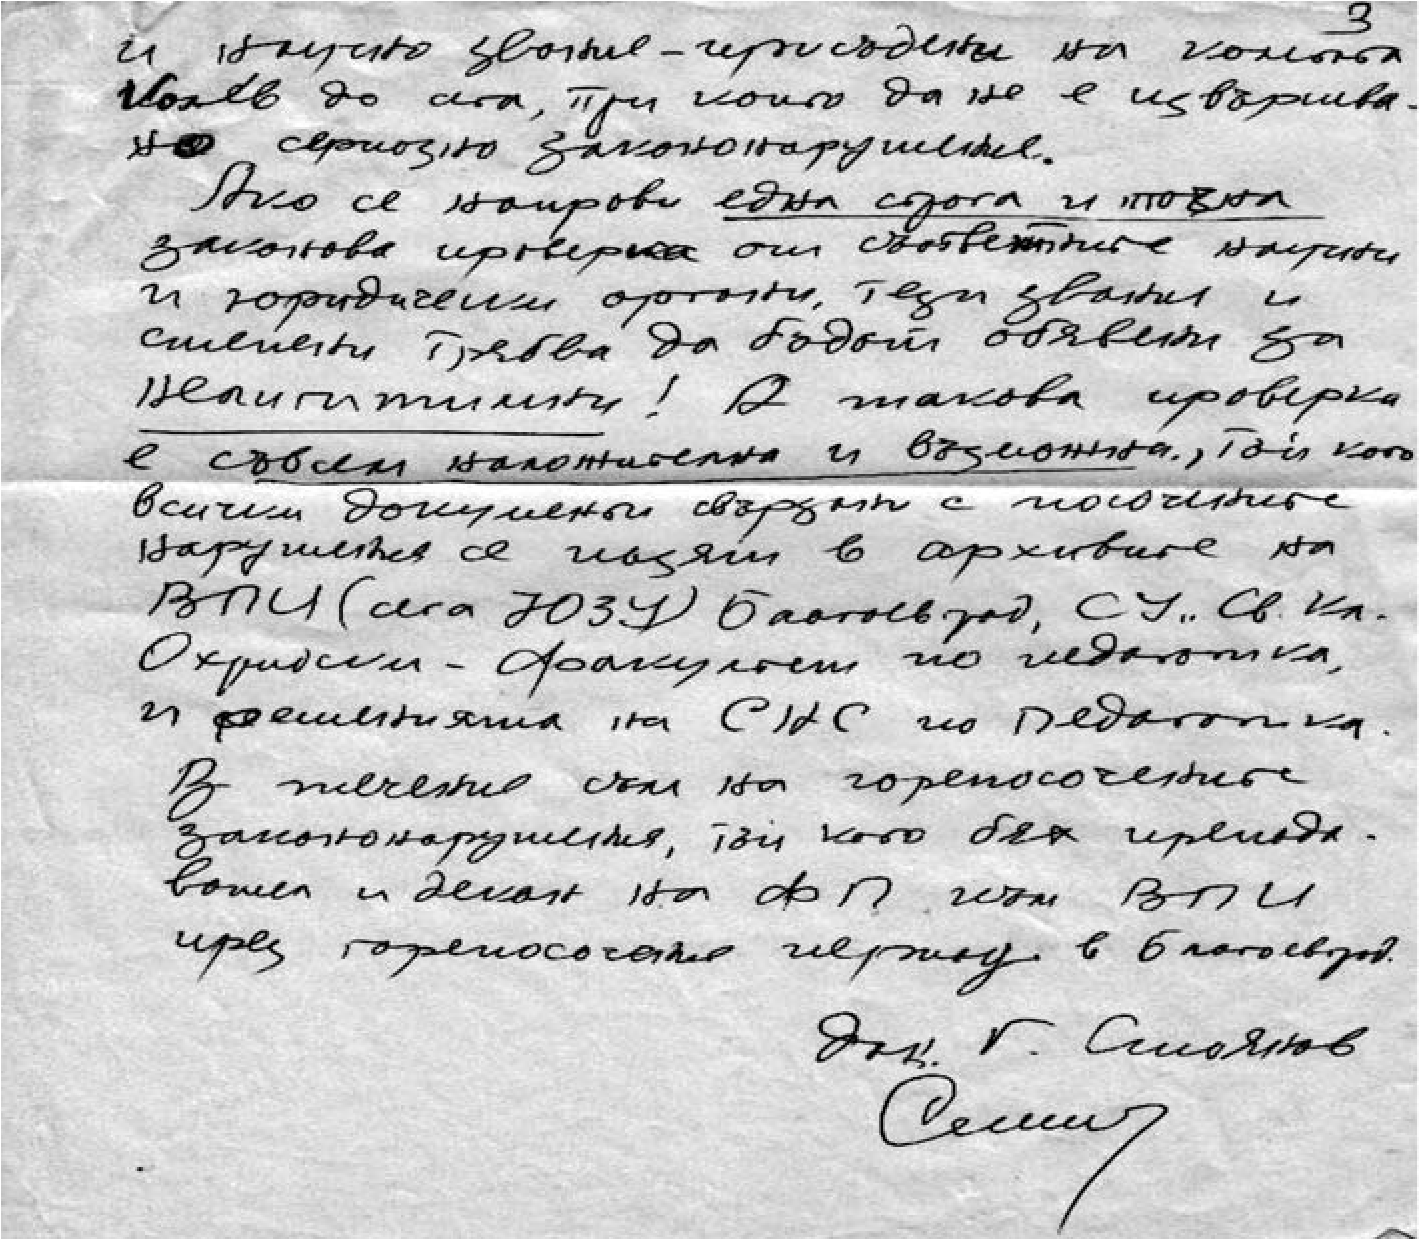 3
и научно звание – присъдени на колегата
Колев до сега, при които да не е извършва-
но сериозно закононарушение.
Ако се направи една строга и точна
законова проверка от съответните научни
и юридически органи, тези звания и
степени трябва да бъдат обявени за
нелигитимни! А такова проверка
е съвсем наложителна и възможна., тъй като
всички документи свързани с посочените
нарушения се пазят в архивите на
ВПИ (сега ЮЗУ) Благоевград, СУ „Св. Кл.
Охридски – факултет по педагогика,
и решенията на СНС по Педагогика.
В течение съм на горепосочените
закононарушения, тъй като бях препода-
вател и декан на ФП към ВПИ
през горепосочения период в Благоевград.
Доц. Г. Стоянов